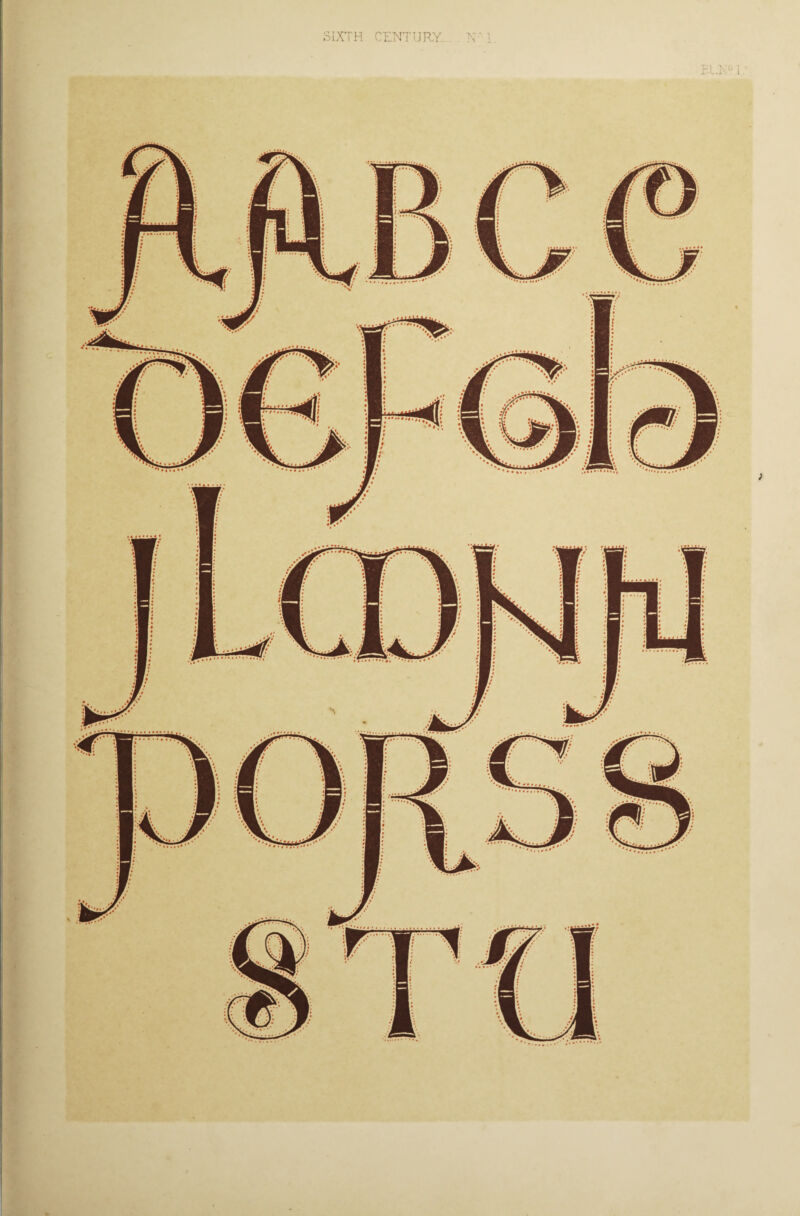 SIXTH CENTURY. Nº 1.
PL. Nº 1.
A A B C C
D E F G h
J L M N N
P O R S S
S T U